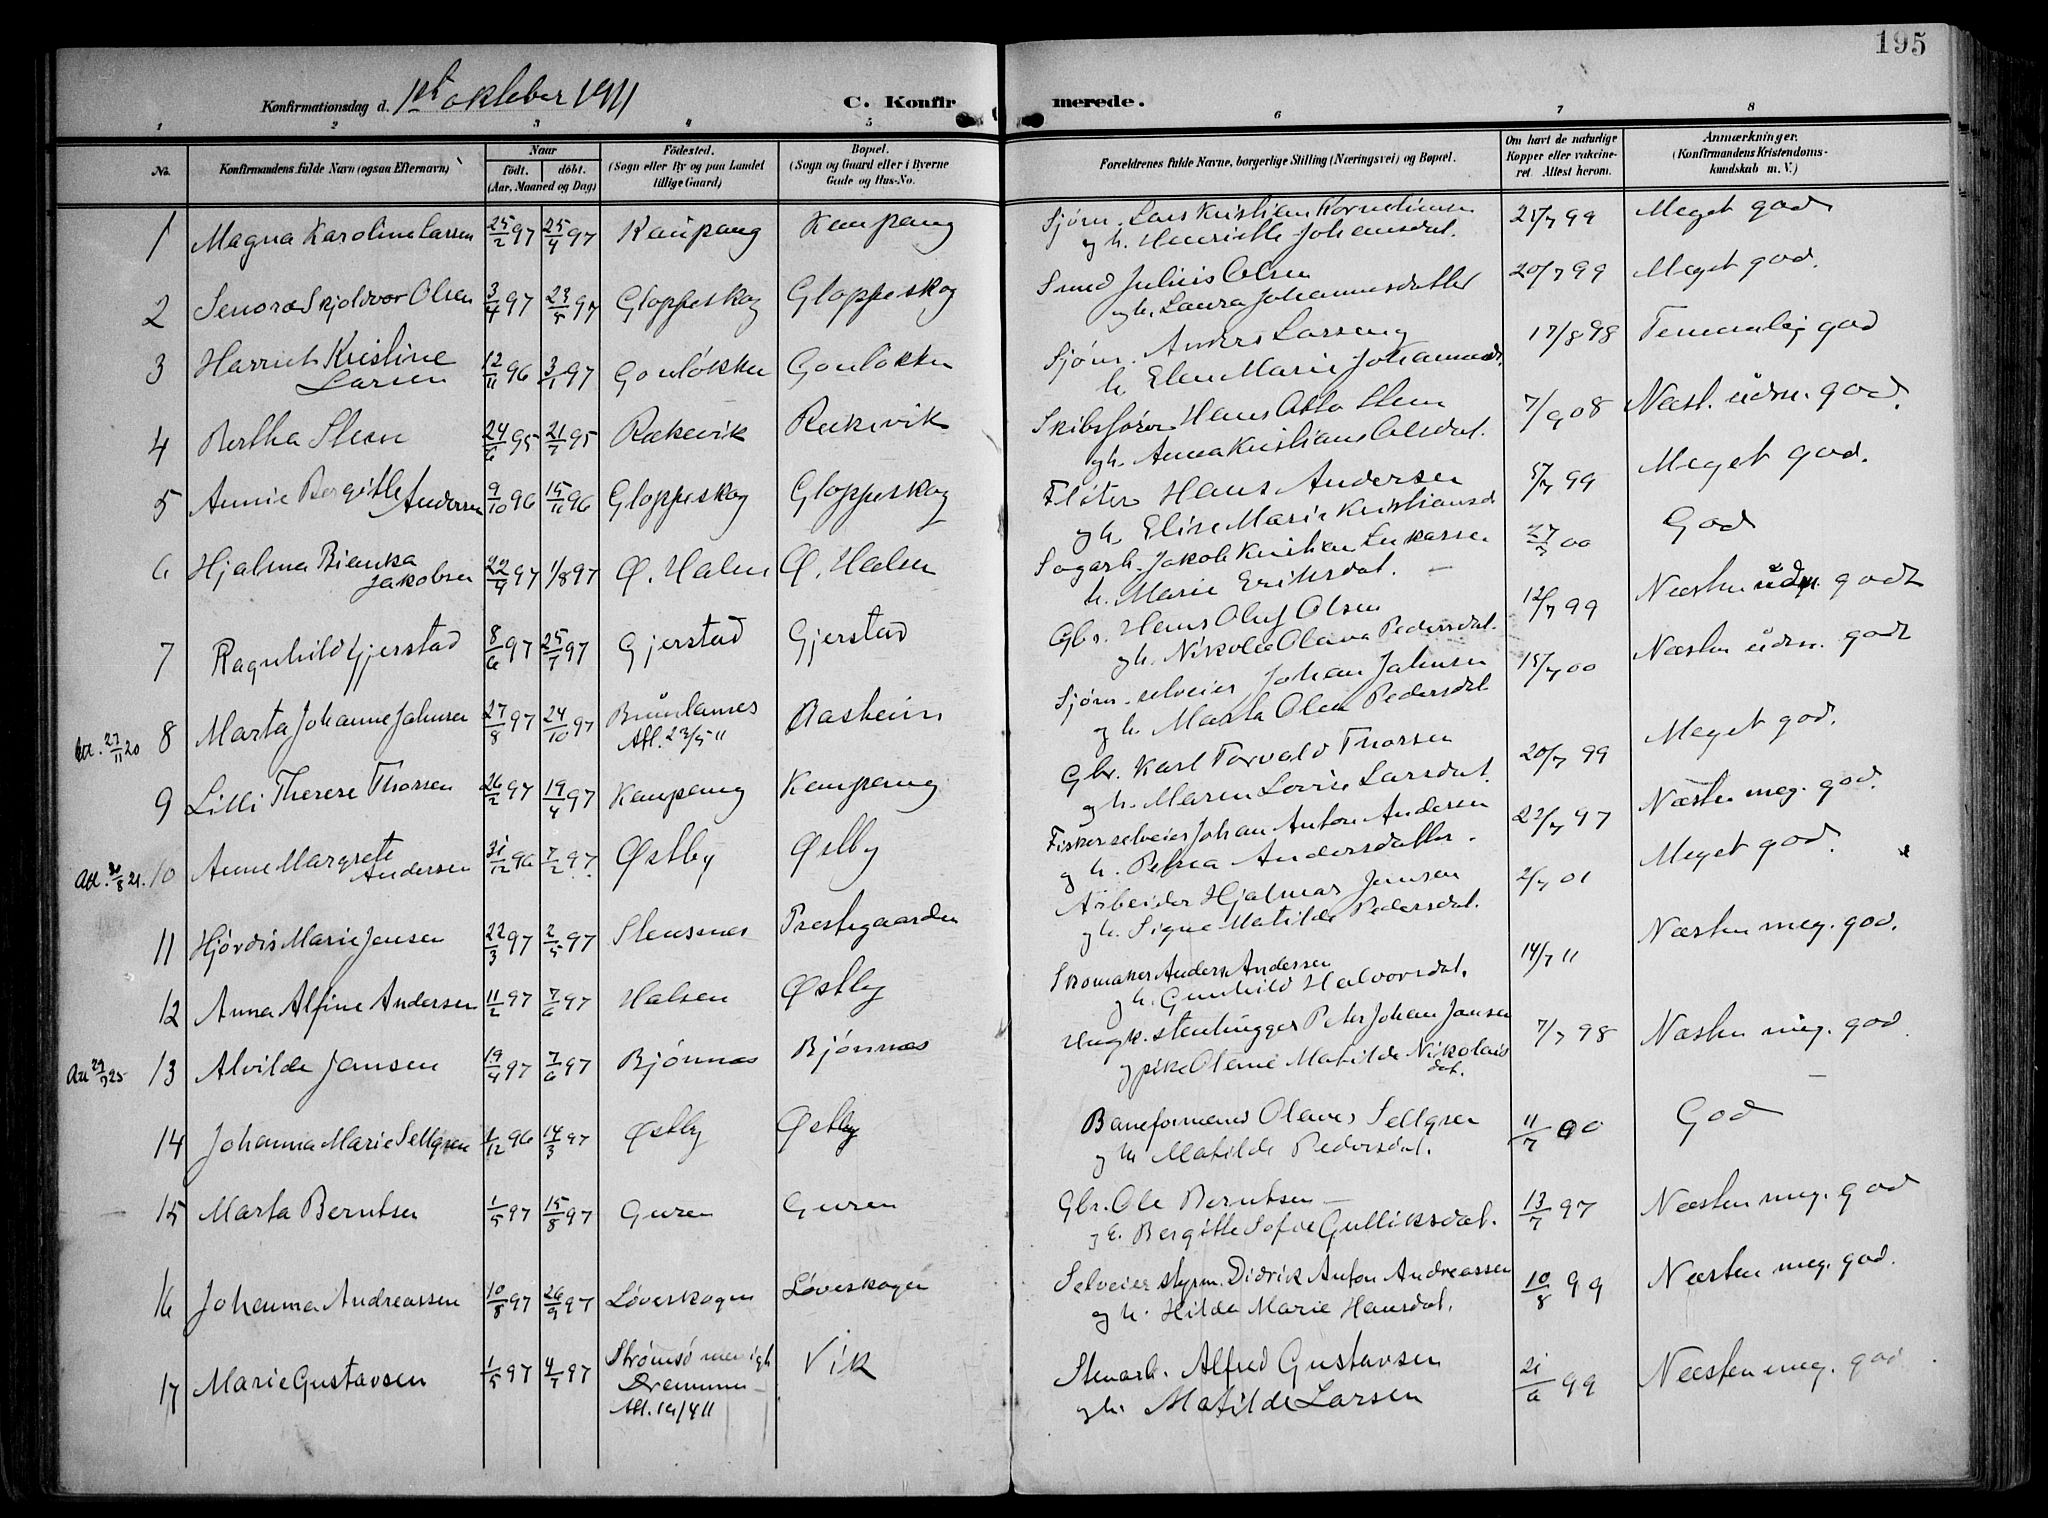 195
Konfirmationsdag d. 1ste oktober 1911
C. Konfirmerede.
1 2 3 4 5 6 7 8
No. Konfirmandens fulde Navn (ogsaa Efternavn) Naar født. døbt. (Aar, Maaned og Dag) Fødested. (Sogn eller By og paa Landet tillige Gaard) Bopæl. (Sogn og Gaard eller i Byerne Gade og Hus-No. Forældrenes fulde Navne, borgerlige Stilling (Næringsvei) og Bopæl. Om havt de naturlige Kopper eller vakcineret. Attest herom. Anmærkninger. (Konfirmandens Kristendomskundskab m. V.)
1 Magna Karoline Larsen 25/2 97 25/4 97 Kaupang Kaupang Sjøm. Lars Kristian Kornelius­sen 21/7 99 Meget god
og h. Henriette Johansdat.
2 Senora Skjoldvor Olsen 3/4 97 23/5 97 Gloppeskog Gloppeskog Smed Julius Olsen 20/7 99 Meget god.
og h. Laura Johannesdatter
3 Harriet Kristine Larsen 12/11 96 3/1 97 Gonløkken Gonløkken Sjøm. Anders Larsen og 17/8 98 Temmelig god
h. Elen Marie Johannesd.
4 Bertha Steen 24/6 95 21/7 95 Rækevik Rækevik Skibsfører Hans Otto Steen 7/9 08 Næst. üdm. god.
og h. Anna Kristians Olsdat.
5 Annie Bergitte Andersen 9/10 96 15/11 96 Gloppeskog Gloppeskog Fløter Hans Andersen 5/7 99 Meget god.
og h. Elise Marie Kristiansd
6 Hjalma Bianka Jakobsen 22/4 97 1/8 97 Ø. Halen Ø. Halen Sagarb. Jakob Kristian Lukassen 27/7 00 God
h. Marie Eriksdat.
7 Ragnhild Gjerstad 8/6 97 25/7 97 Gjerstad Gjerstad Gbr. Hans Oluf Olsen 12/7 99 Næsten üdm. godt
og h. Nikolea Olava Pedersdat.
Att. 27/11 20 8 Marta Johanne Jahnsen 27/8 97 24/10 97 Brunlanæs Att. 23/5 11 Basheim Sjøm. selveier Johan Jahnsen 15/7 00 Næsten üdm. godt
og h. Marta Olea Pedersdat
9 Lilli Therese Thorsen 26/2 97 19/4 97 Kaupang Kaupang Gbr. Karl Torvald Thorsen 20/7 99 Meget god.
og h. Maren Lovise Larsdat.
Att. 30/8 21. 10 Anne Margrete Andersen 31/12 96 7/2 97. Østby Østby Fisker selveier Johan Anton Andersen 22/7 97 Næsten meg. god.
og h. Petrea Andersdatter.
11 Hjørdis Marie Jensen 22/3 97 2/5 97 Stensnes Prestegaarden Arbeider Hjalmar Jensen 2/7 01 Meget god.
og h. Signe Matilde Pedersdat.
12 Anna Alfine Andersen 11/2 97 7/6 97 Halsen Østby Skomaker Anders Andersen 14/7 11 Næsten meg. god.
og h. Gunhild Halvorsdat.
Att 29/9 25 13 Alvilde Jansen 19/4 97 7/6 97 Bjønnes Bjønnes Ungk. stenhugger Peter Johan Jansen 7/7 98 Næsten meg. god
og pike Olene Matilde Nikolaisdat.
14 Johanna Marie Sellgren 1/12 96 14/3 97 Østby Østby Baneformand Olaves Sellgren 11/7 00 God
og h. Matilde Pedersdat.
15 Marta Berntsen 1/5 97 15/8 97 Guren Guren Gbr. Ole Berntsen 13/7 97 Næsten meg. god
og h. Bergitte Sofie Gulliksdat.
16 Johanna Andreassen 10/8 97 26/9 97 Løveskogen Løveskogen Selveier styrm. Didrik Anton Andreassen 10/8 99 Næsten meg. god.
og h. Hilda Marie Hansdat.
17 Marie Gustavsen 1/5 97 4/7 97 Strømsø menigh Drammen Att. 19/4 11 Vik Stenarb. Alfred Gustavsen 21/6 99 Næsten meg. god
og h. Matilde Larsen